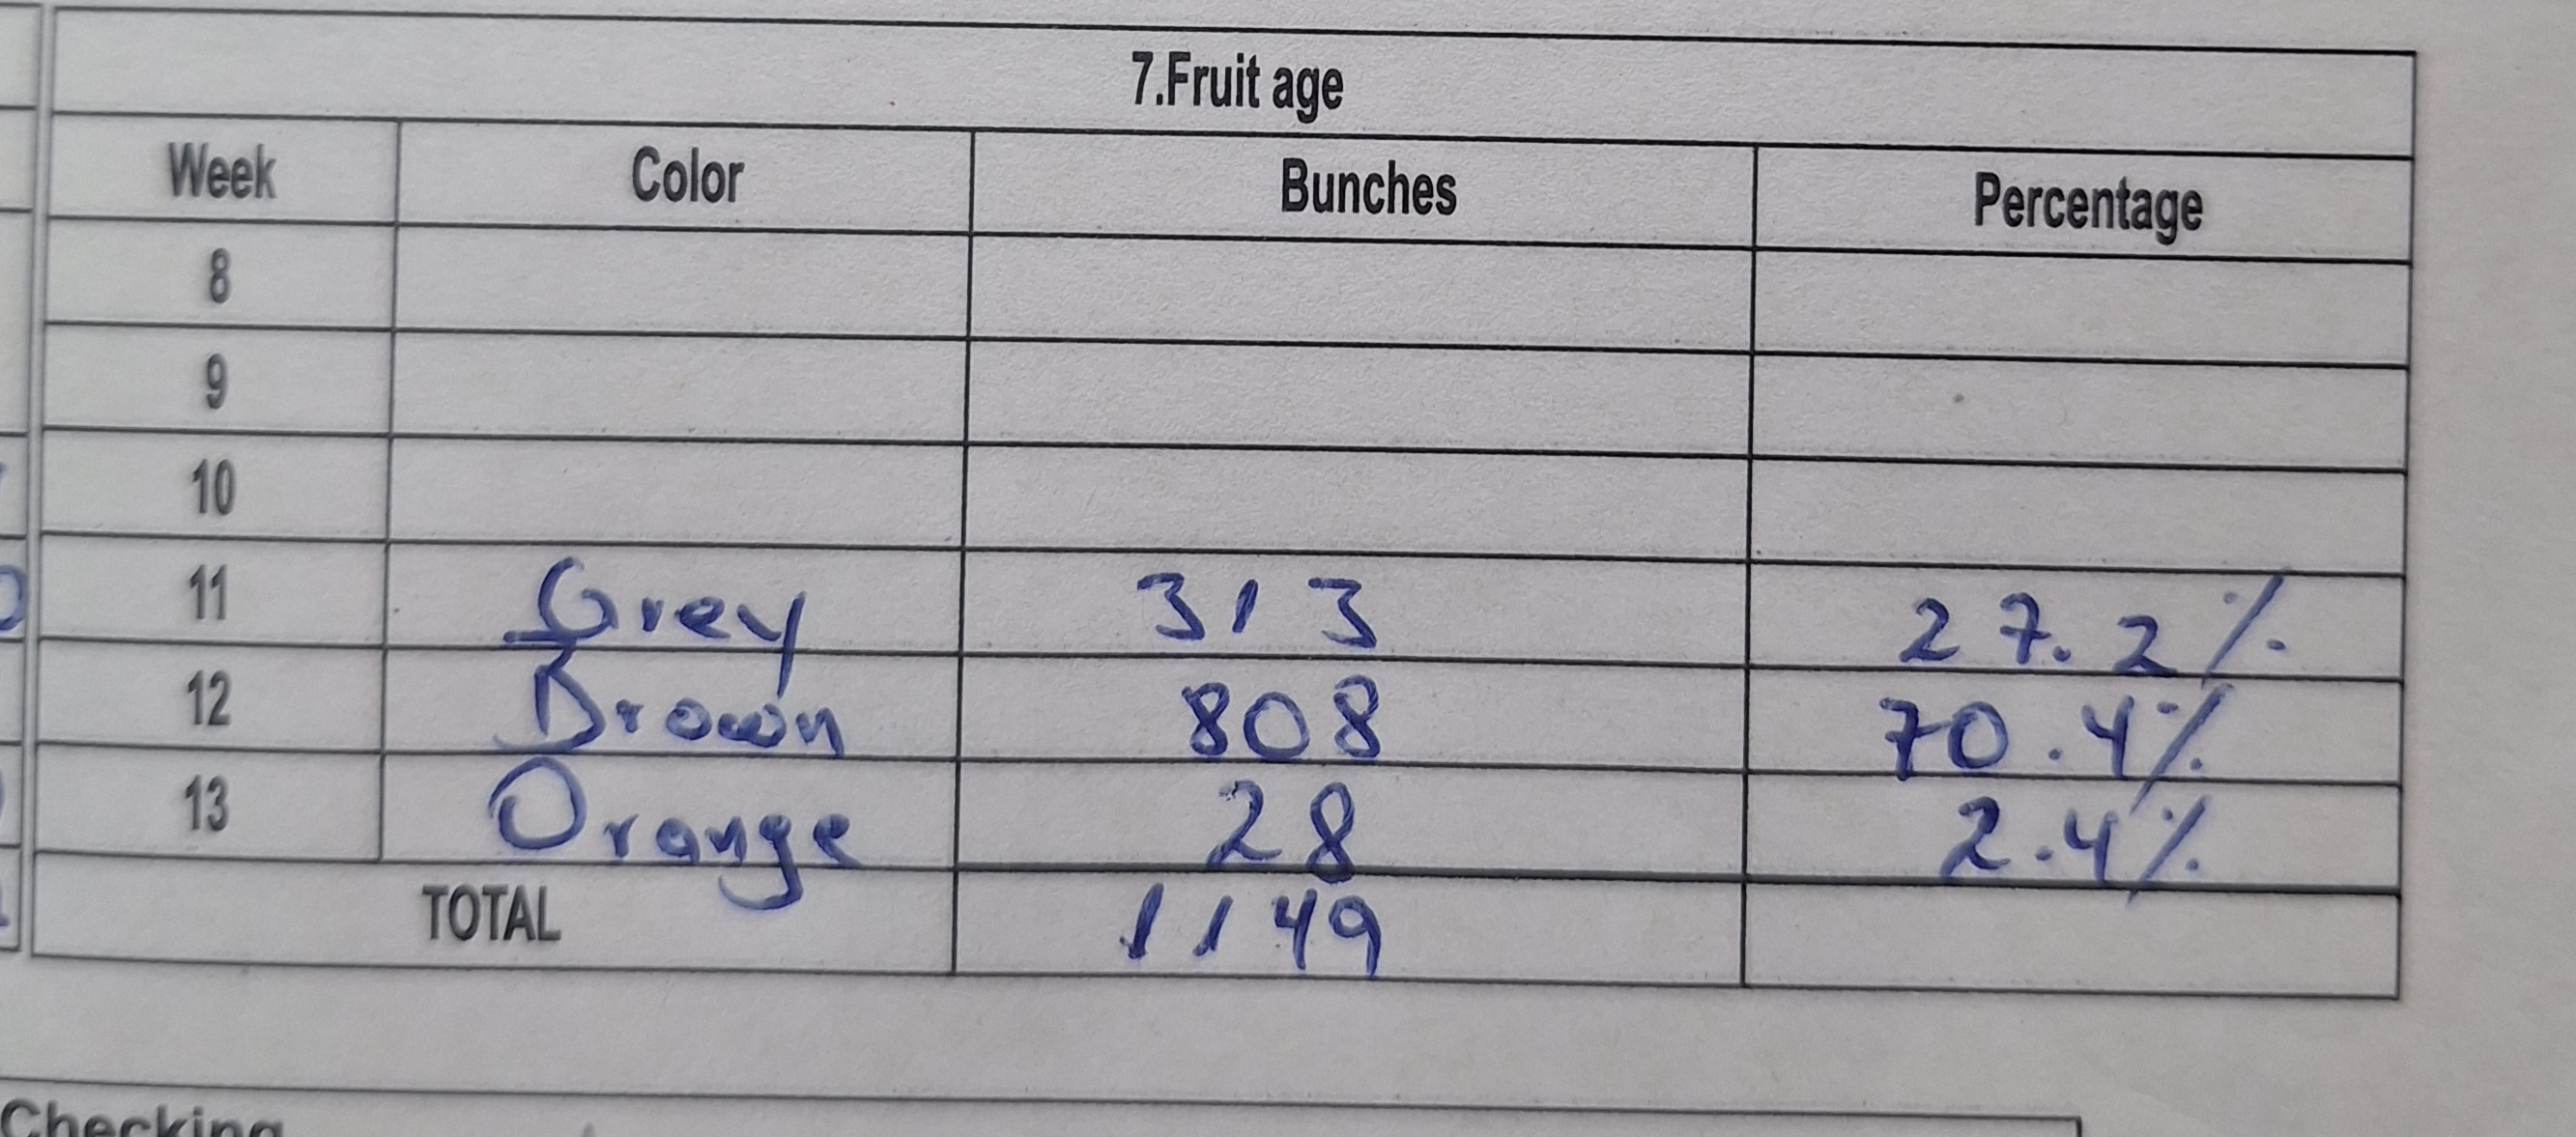 7.Fruit age
Week Color Bunches Percentage
8
9
10
11 Grey 313 27.2%
12 Brown 808 70.4%
13 Orange 28 2.4%
TOTAL 1149
Checking